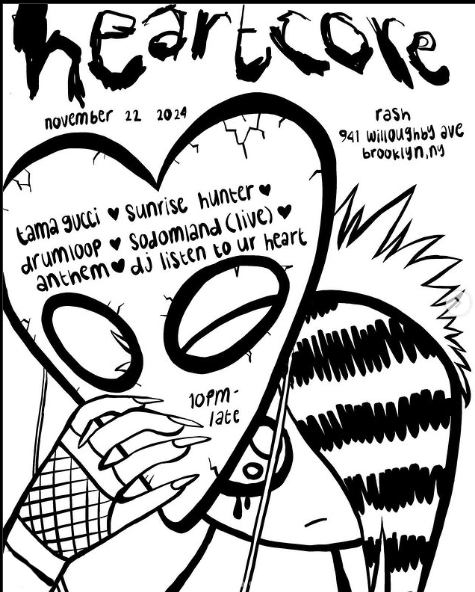 heartcore
november 22 2024
rash
941 willoughby ave
brooklyn, ny
tama gucci ♥ sunrise hunter ♥
drumloop ♥ sodomland (live) ♥
anthem ♥ dj listen to ur heart
10pm-
late